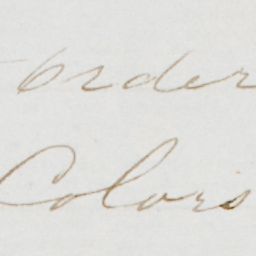 order
Colors